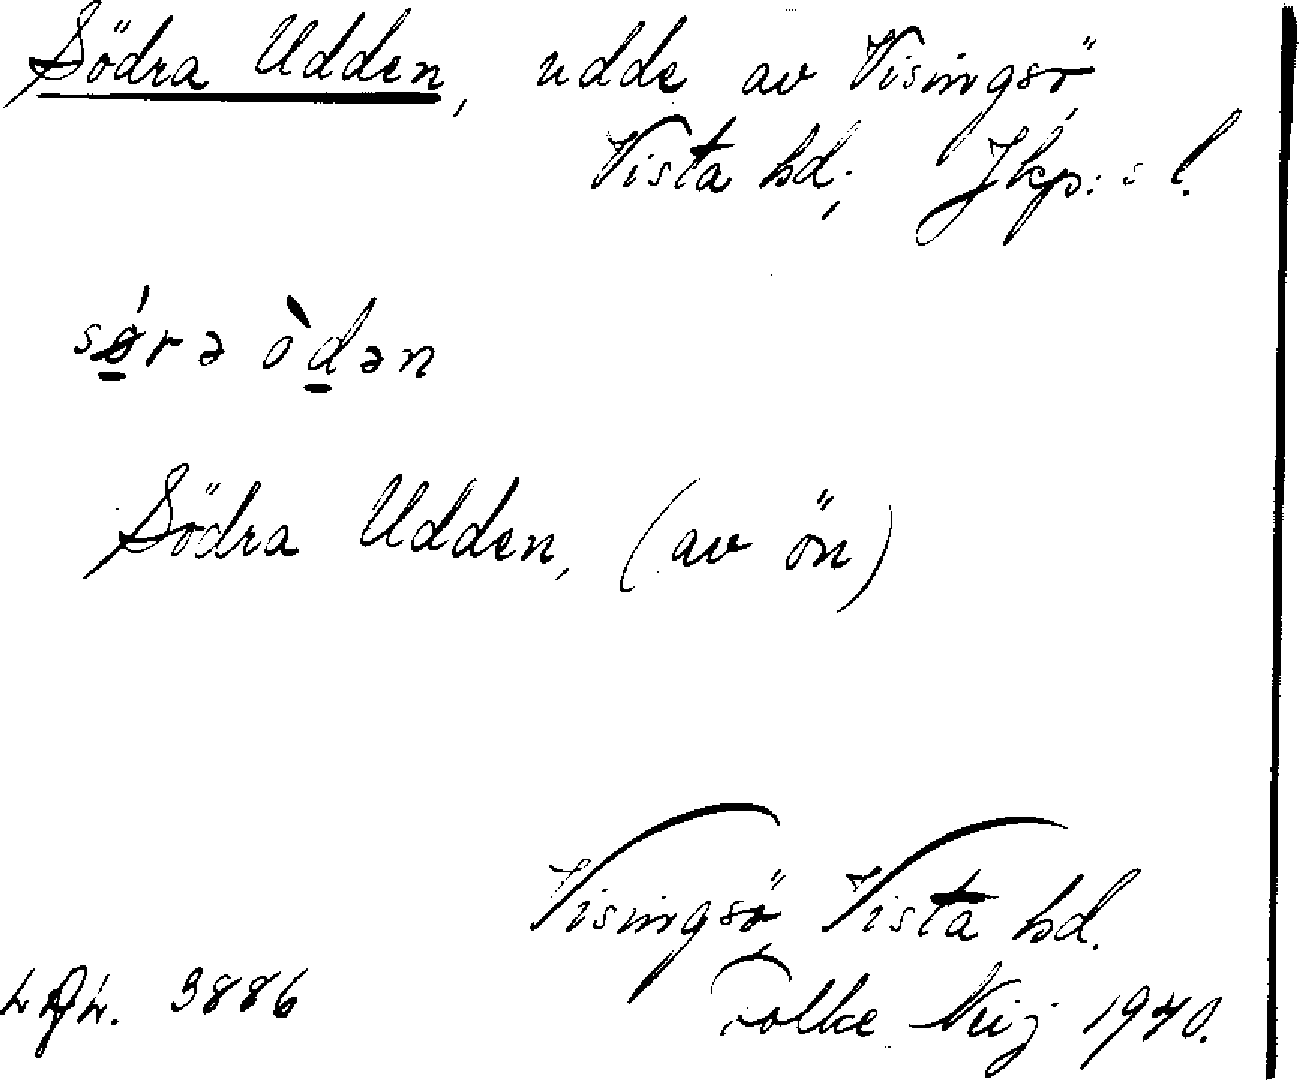 Södra Udden, udde av Visingsö,
Vista hd; Jkp:s l.
sǿ̠rə òd̠ən
Södra Udden, (av ön)
Visingsö, Vista hd.
3886 Folke 1940.